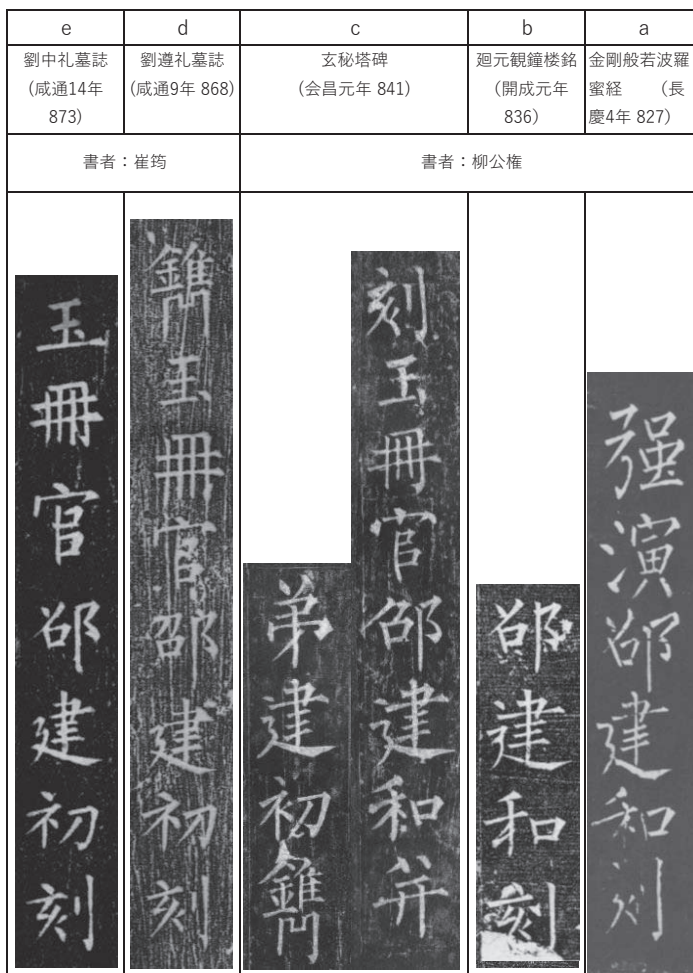 e
d
c
b
a
劉中礼墓誌
(咸通14年
873)
劉遵礼墓誌
(咸通9年 868)
玄秘塔碑
(会昌元年 841)
廻元観鐘楼銘
(開成元年
836)
金剛般若波羅
蜜経 (長
慶4年 827)
書者：崔筠
書者：柳公権
玉冊官邵建初刻
鐫玉冊官邵建初刻
刻玉冊官邵建和并
弟建初鐫
邵建和刻
强演邵建和刻